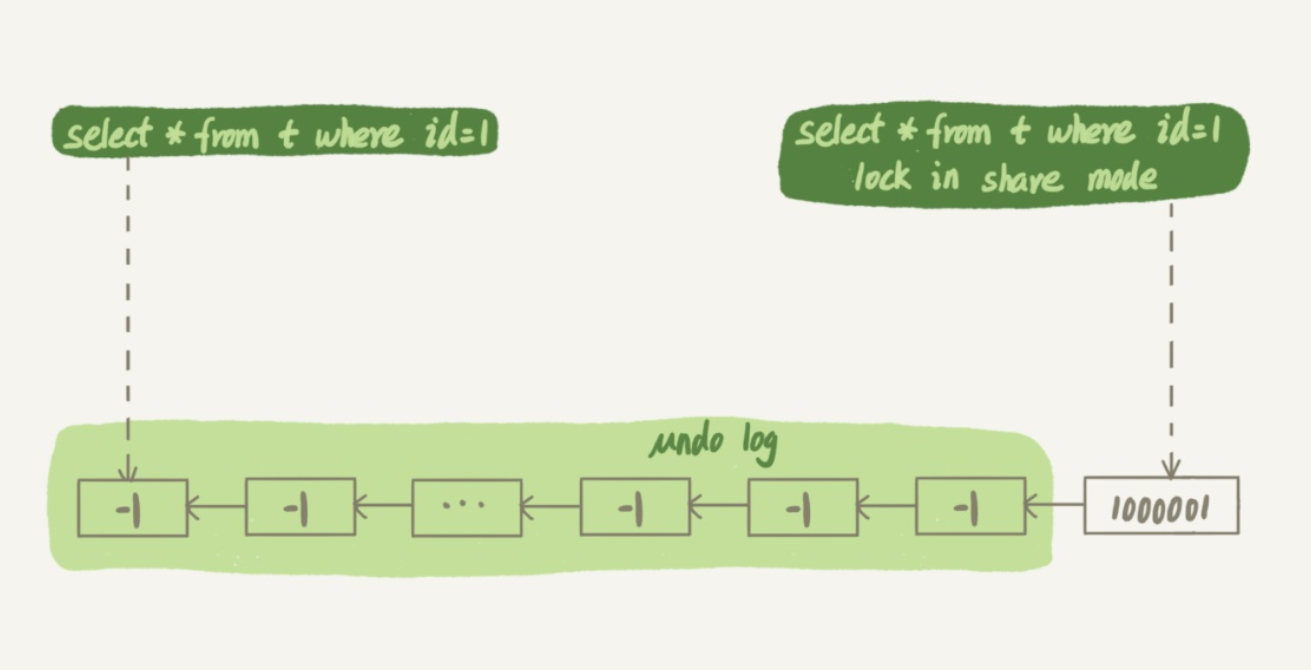 select * from t where id=1
select * from t where id=1
lock in share mode
undo log
-1
-1
...
-1
-1
-1
1000001